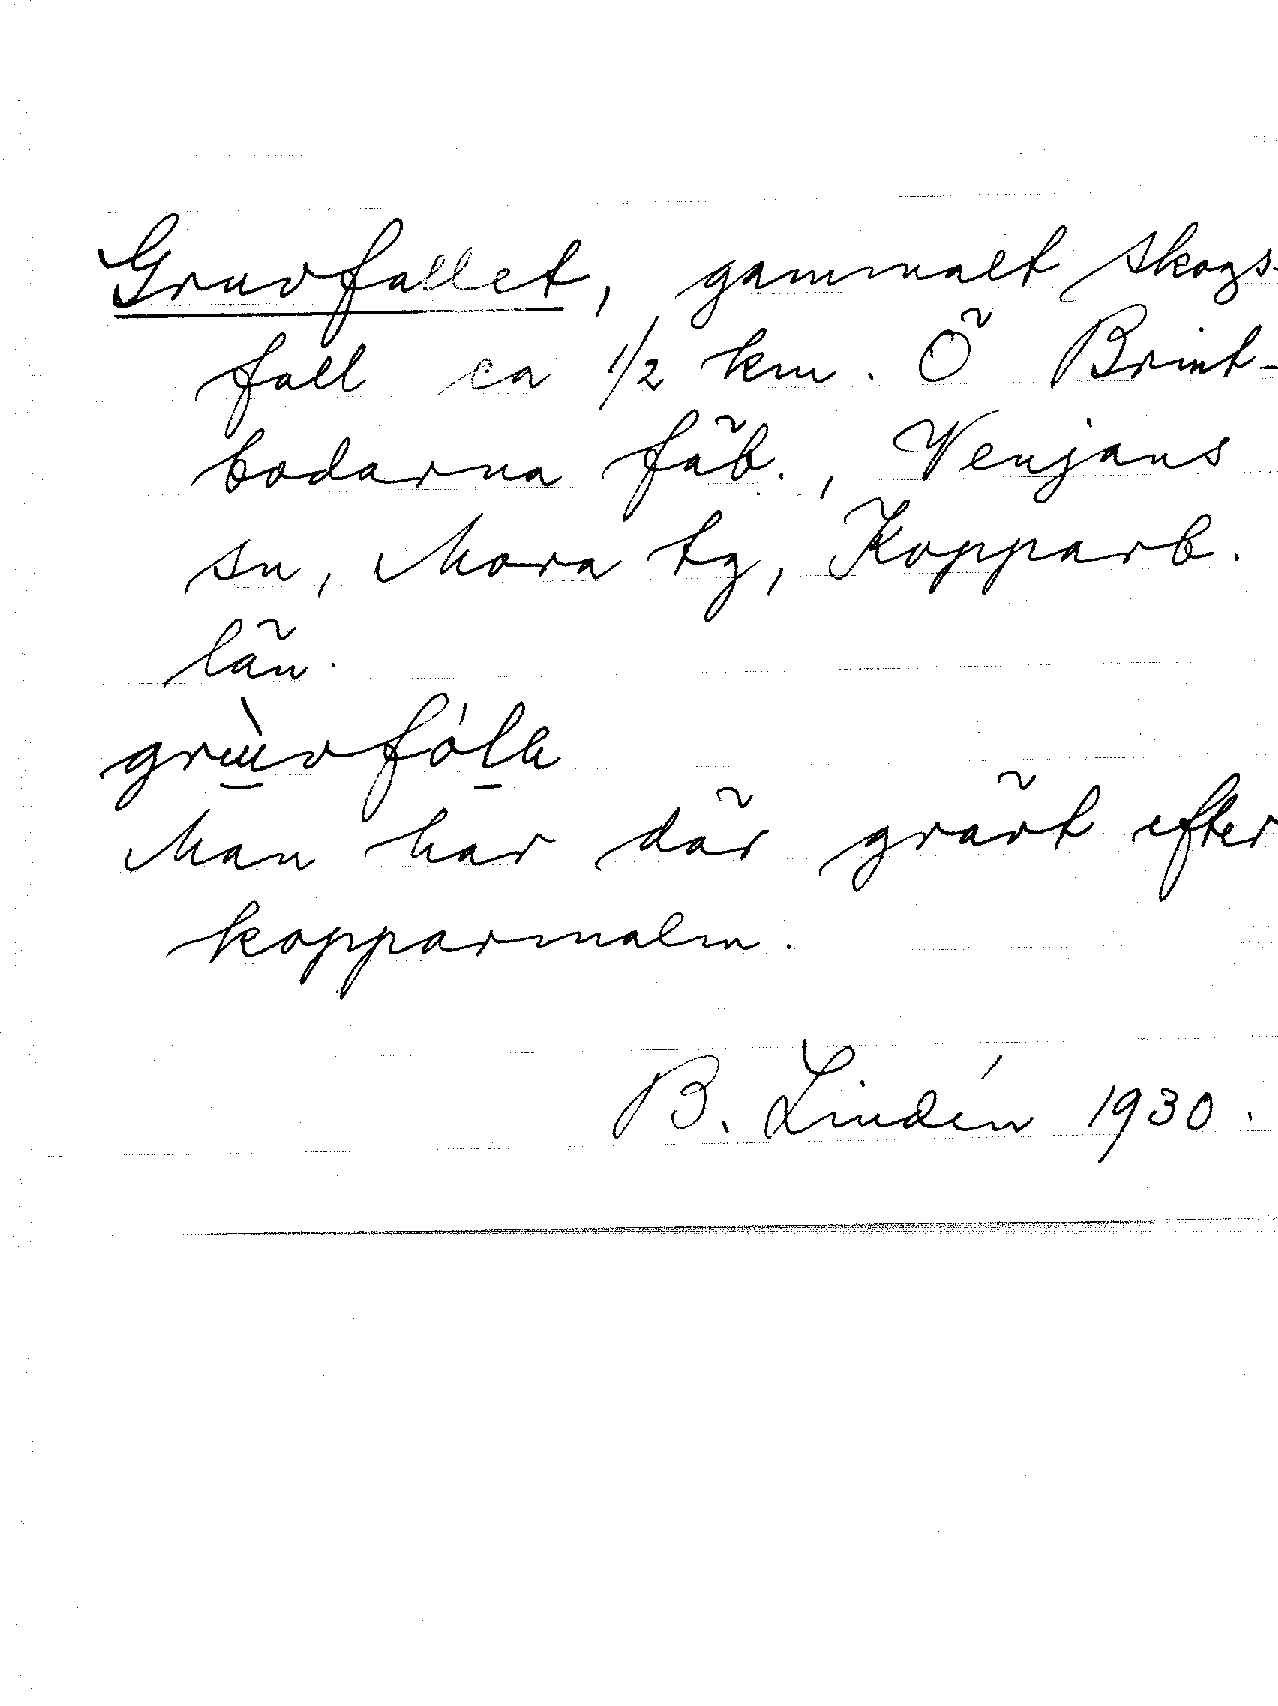 Gruvfallet, gammalt skogs-
fall ca 1/2 km. Ö Brint-
bodarna fäb., Venjans
sn, Mora tg, Kopparb.
län.
Man har där grävt efter
kopparmalm.
B. Lindén 1930.